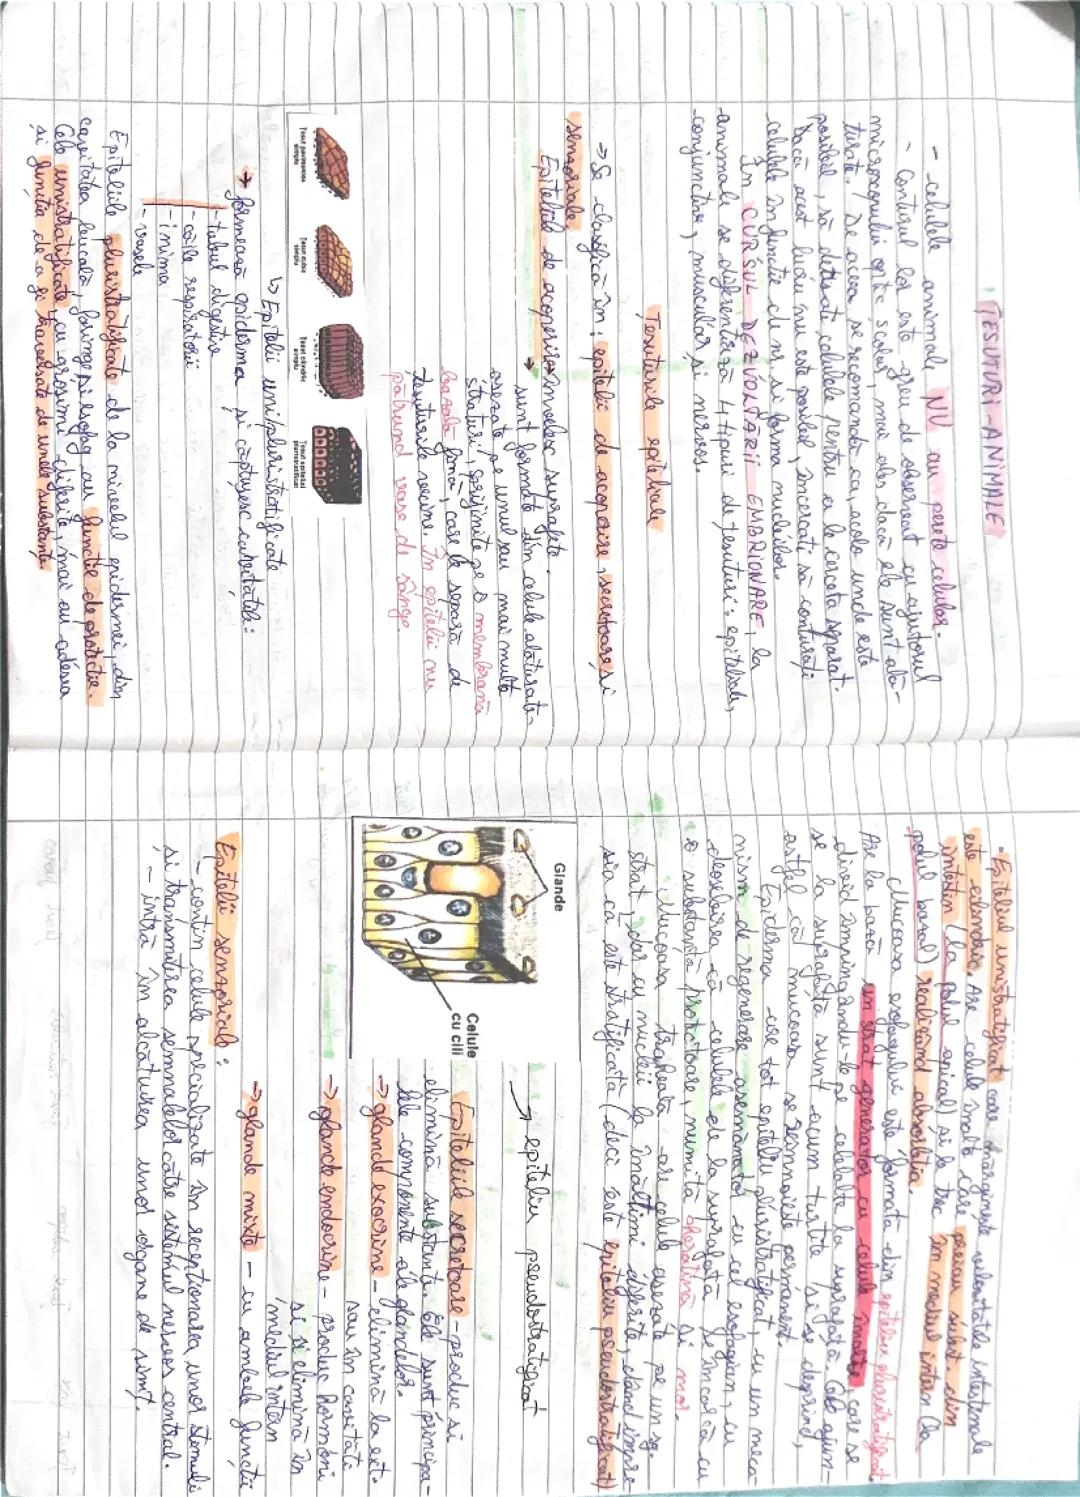 ȚESUTURI ANIMALE
- celulele animale NU au perete celular.
- Conturul lor este greu de observat cu ajutorul
microscopului optic școlar, mai ales dacă ele sunt ală-
turate. De aceea se recomandă ca, acolo unde este
posibil, să detașați celulele pentru a le cerceta separat.
Dacă acest lucru nu este posibil, încercați să conturați
celulele în funcție de nr. și forma nucleilor.
În CURSUL DEZVOLTĂRII EMBRIONARE, la
animale se diferențiază 4 tipuri de țesuturi: epiteliale,
conjunctive, muscular și nervos.
Țesuturile epiteliale
→ Se clasifică în: epitelii de acoperire, secretoare și
senzoriale.
Epiteliile de acoperire → învelesc suprafețe.
→ sunt formate din celule alăturate
așezate pe unul sau mai multe
straturi, sprijinite pe o membrană
bazală fină, care le separă de
țesuturile vecine. În epitelii nu
pătrund vase de sânge.
Țesut pavimentos simplu
Țesut cubic simplu
Țesut cilindric simplu
Țesut epitelial pluristratificat
↳ Epitelii uni/pluristratificate
→ formează epiderma și căptușesc cavitățile:
- tubul digestiv
- căile respiratorii
- inima
- vasele
Epiteliile pluristratificate de la nivelul epidermei, din
cavitatea bucală, faringe și esofag au funcție de protecție.
Cele unistratificate, cu grosimi diferite, mai au adesea
și funcția de a fi traversate de unele substanțe.
• Epiteliul unistratificat care mărginește vilozitățile intestinale
este cilindric. Are celule înalte care preiau subst. din
intestin (la polul apical) și le trec în mediul intern (la
polul bazal) realizând absorbția.
Mucoasa esofagului este formată din epiteliu pluristratificat
Are la bază un strat generator cu celule înalte, care se
divid împingându-le pe celelalte la suprafață. Cele ajun-
se la suprafață sunt acum turtite și se desprind,
astfel că mucoasa se reînnoiește permanent.
Epiderma are tot epiteliu pluristratificat, cu un meca-
nism de regenerare asemănător cu cel esofagian, cu
deosebirea că celulele de la suprafață se încarcă cu
o substanță protectoare, numită keratină și mor.
Mucoasa traheală are celule așezate pe un sg.
strat, dar cu nucleii la înălțimi diferite, dând impre-
sia că este stratificată (deci este epiteliu pseudostratificat)
Glande
Celule
cu cili
→ epiteliu pseudostratificat
Epiteliile secretoare - produc și
elimină substanțe. Ele sunt principa-
lele componente ale glandelor.
→ glande exocrine - elimină la ext.
sau în cavități
→ glande endocrine - produc hormoni
și îi elimină în
mediul intern
→ glande mixte - cu ambele funcții
Epitelii senzoriale:
- conțin celule specializate în recepționarea unor stimuli
și transmiterea semnalelor către sistemul nervos central.
- intră în alcătuirea unor organe de simț.